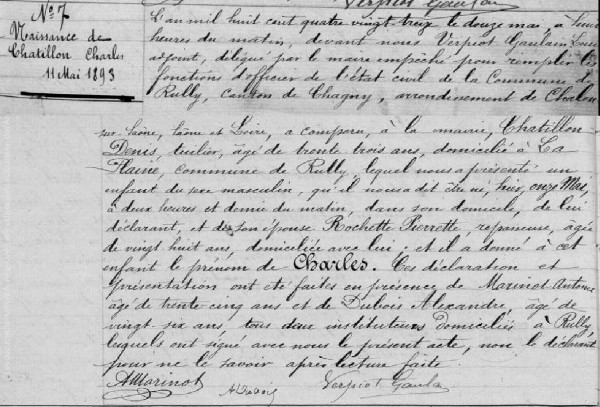 Verpiot Gaulain
N° 7
Naissance de
Chatillon Charles
11 Mai 1893
L'an mil huit cent quatre vingt treize le douze mai, à
heures du matin, devant nous Verpiot Gaulain
adjoint, délégué par le maire empêché pour remplir les
fonctions d'officier de l'état civil de la Commune de
Rully, canton de Chagny, arrondissement de Chalon
sur Saône, Saône et Loire, a comparu, à la mairie, Chatillon
Denis, tuilier, âgé de trente trois ans, domicilié à La
Plaine, commune de Rully, lequel nous a présenté un
enfant du sexe masculin, qu'il nous a dit être né, hier, onze Mai,
à deux heures et demie du matin, dans son domicile, de lui
déclarant, et de son épouse Rochette Pierrette, repasseuse, âgée
de vingt huit ans, domiciliée avec lui ; et il a donné à cet
enfant le prénom de Charles. Ces déclaration et
présentation ont été faites en présence de Marinot Antoine
âgé de trente-cinq ans et de Dubois Alexandre, âgé de
vingt-six ans, tous deux instituteurs domiciliés à Rully,
lesquels ont signé avec nous le présent acte, non le déclarant
pour ne le savoir après lecture faite.
AMarinot Verpiot Gaula